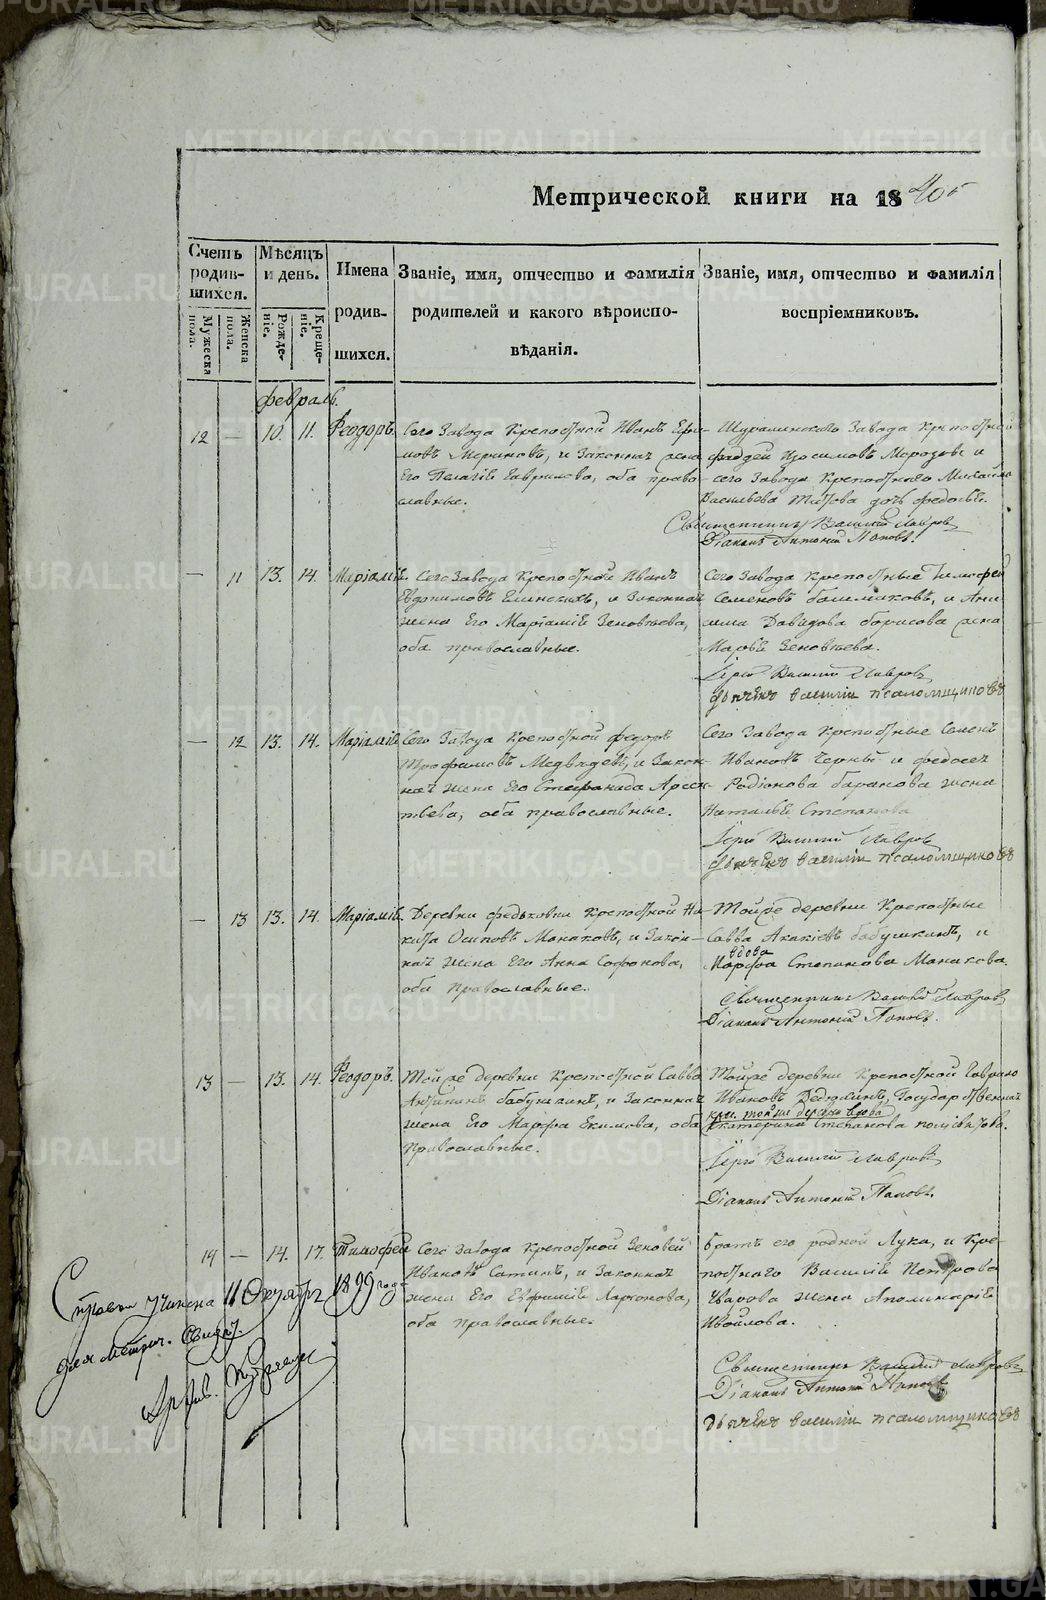 Метрической книги на 1840 г
Счетъ родив- шихся.
Мужеска пола.
Женска пола.
Мѣсяцъ и день.
Рожде- ніе.
Креще- ніе.
Имена родив- шихся.
Званіе, имя, отчество и фамилія
родителей и какого вѣроиспо-
вѣданія.
Званіе, имя, отчество и фамилія
воспріемниковъ.
Февраль.
12 — 10. 11. Ѳеодоръ.
Сего Завода Крепостной Иванъ
и Законная жена
Его Пелагія Гаврилова, оба право-
славные.
Шуралинского Завода Крепостной
Фаддей Изосимовъ Морозовъ и
сего Завода Крепостнаго Михайла
Васильева Титова дочь Федосья.
Священникъ Василій Лавровъ
Діаконъ Антоній Поповъ.
— 11 13. 14. Маріамія.
Сего Завода Крепостной Иванъ
Евдокимовъ и Законная
жена Его Маріамія Зеновьева,
оба православные.
Сего Завода Крепостные Тимофей
Семеновъ и
Давыдова Борисова жена
Марья Зеновьева.
Іерей Василій Лавровъ
дьячекъ василіи псаломщиковъ
— 12 13. 14. Маріамія.
Сего Завода Крепостной Федоръ
Трофимовъ Медведевъ, и Закон-
ная жена Его Стефанида Арсен-
тьева, оба православные.
Сего Завода Крепостные Семенъ
Ивановъ Черный и Федосея
Родіонова баранова жена
Наталья Степанова
Іерей Василій Лавровъ
дьячекъ василіи псаломщиковъ
— 13 13. 14. Маріамія.
Деревни Федьковки Крепостной Ни-
кита Осиповъ Манаковъ, и Закон-
ная жена Его Анна Софонова,
оба православные.
Тойже деревни Крепостные
Савва бабушкинъ, и
вдова
Марфа Степанова Манакова.
Священникъ Василій Лавровъ
Діаконъ Антоній Поповъ.
13 — 13. 14. Ѳеодоръ.
Тойже деревни Крепостной Савва
бабушкинъ, и Законная
жена Его Марфа Екимова, оба
православные.
Тойже деревни Крепостной Гаврило
Ивановъ Дедюлинъ, Государственная
кре. тойже деревни вдова
Екатерина Степанова
Іерей Василій Лавровъ
Діаконъ Антоній Поповъ.
14 — 14. 17. Тимофей
Сего Завода Крепостной Зеновей
Ивановъ Сатинъ, и Законная
жена Его Евфимія Ларионова,
оба православные.
братъ его родной Лука, и Кре-
постнаго Василія Петрова
Уварова жена Аполинарія
Священникъ Василій Лавровъ
Діаконъ Антоній Поповъ
дьячекъ василіи псаломщиковъ
Справка учинена 11 Октября 1899 года
для метрич. Свидет.
METRIKI.GASO-URAL.RU